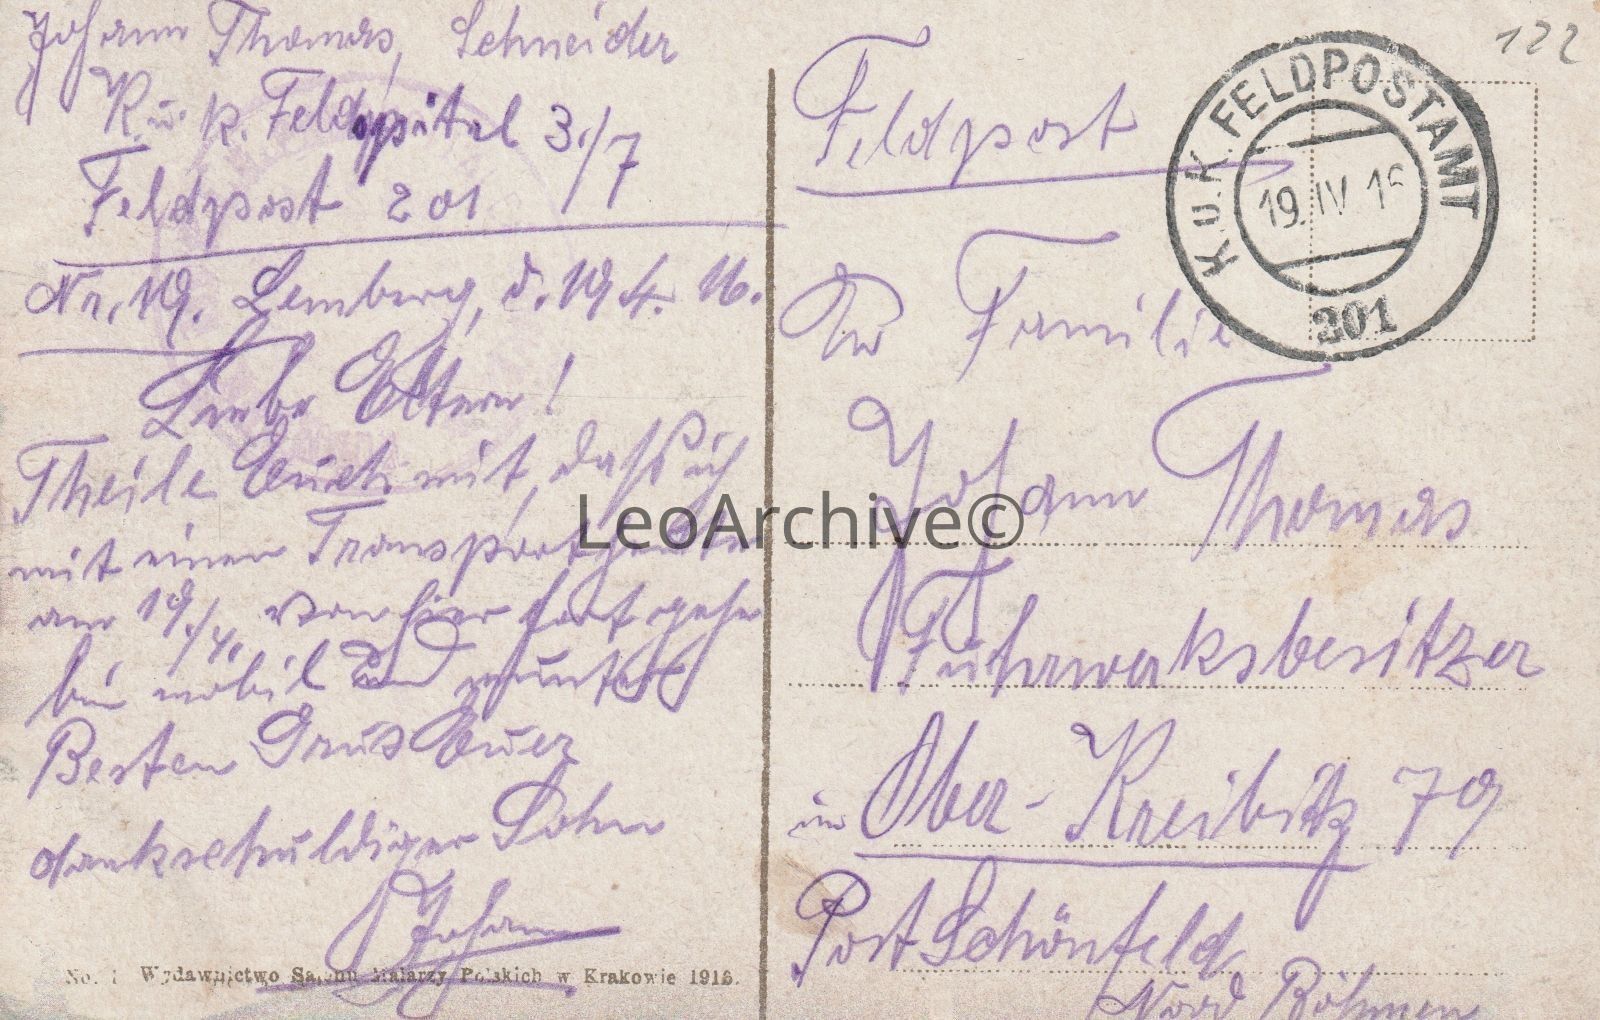 Johann Thomas, Schneider
K. u. k. Feldspital 3./7
Feldpost 201
Nr. 19. Lemberg, d. 19 4. 16.
Liebe Eltern!
Theile Euch mit, daß ich
mit einen Transport heute
am 19./4. von hier fort gehe
bin mobil und munter
Besten Grus Euer
dankschuldiger Sohn
Johann
No. 1 Wydawnictwo Salonu Malarzy Polskich w Krakowie 1916.
122
Feldpost
K.u.K. FELDPOSTAMT
19. IV 16
201
An Familie
Johann Thomas
Fuhrwerksbesitzer
in Ober-Kreibitz 79
Post Schönfeld
Nord Böhmen
LeoArchive©